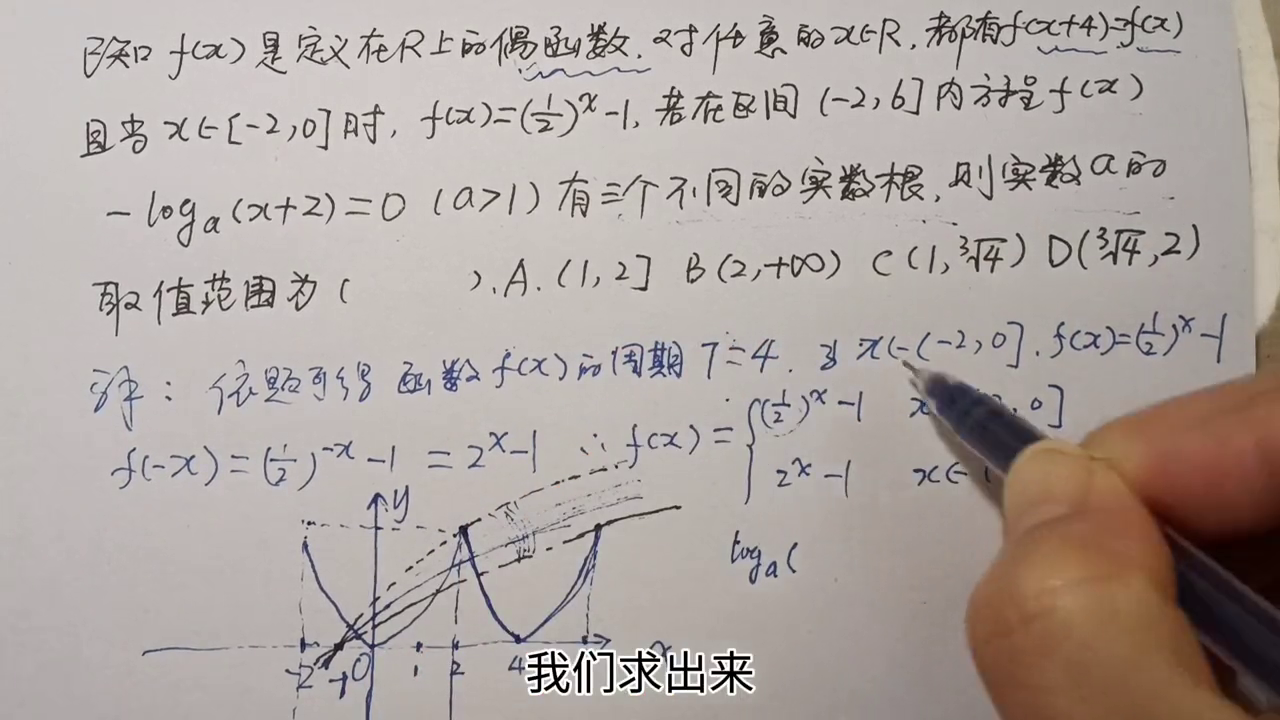 已知 f(x) 是定义在R上的偶函数.对任意的x∈R,都有f(x+4)=f(x)
且当 x∈[-2,0]时, f(x)=(1/2)^x-1,若在区间 (-2,6]内方程f(x)
-log_a(x+2)=0 (a>1)有三个不同的实数根,则实数a的
取值范围为( ).A.(1,2] B(2,+∞) C(1,∛4) D(∛4,2)
解:依题可得 函数f(x)的周期T=4. x∈(-2,0].f(x)=(1/2)^x-1
f(-x)=(1/2)^-x-1 =2^x-1 ∴f(x)={(1/2)^x-1 0]
2^x-1 x∈
y
log_a(
-2 -1 0 1 2 4 x
我们求出来